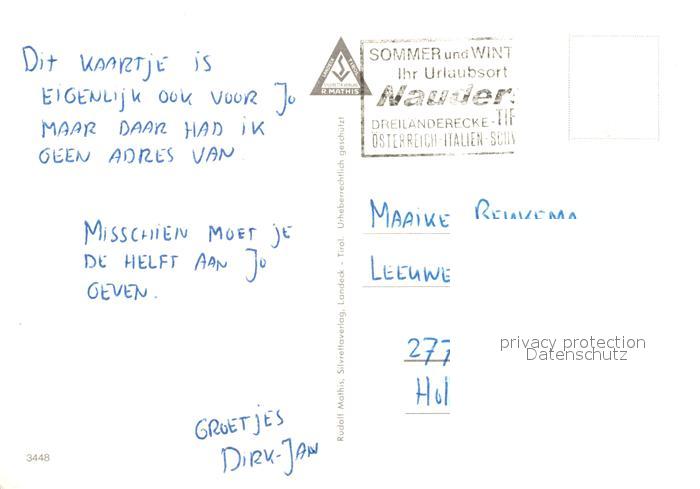 Dit kaartje is
eigenlijk ook voor Jo
maar daar had ik
geen adres van
Misschien moet je
de helft aan Jo
geven.
Groetjes
Dirk-Jan
3448
R. MATHIS
Rudolf Mathis, Silvrettaverlag, Landeck - Tirol. Urheberrechtlich geschützt
SOMMER und WINT
Ihr Urlaubsort
Nauders
DREILÄNDERECKE-TIR
ÖSTERREICH-ITALIEN-SCHW
Maaike
Leeuwe
277
Hol
privacy protection
Datenschutz